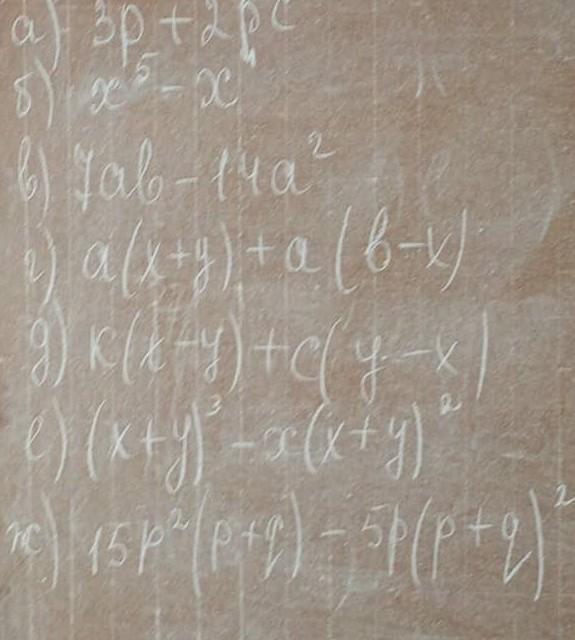 а) 3p + 2pc
б) x⁵ - x⁴
в) 7ab - 14a²
г) a(x+y) + a(b-x)
д) k(x-y) + c(y-x)
е) (x+y)³ - x(x+y)²
ж) 15p²(p+q) - 5p(p+q)²